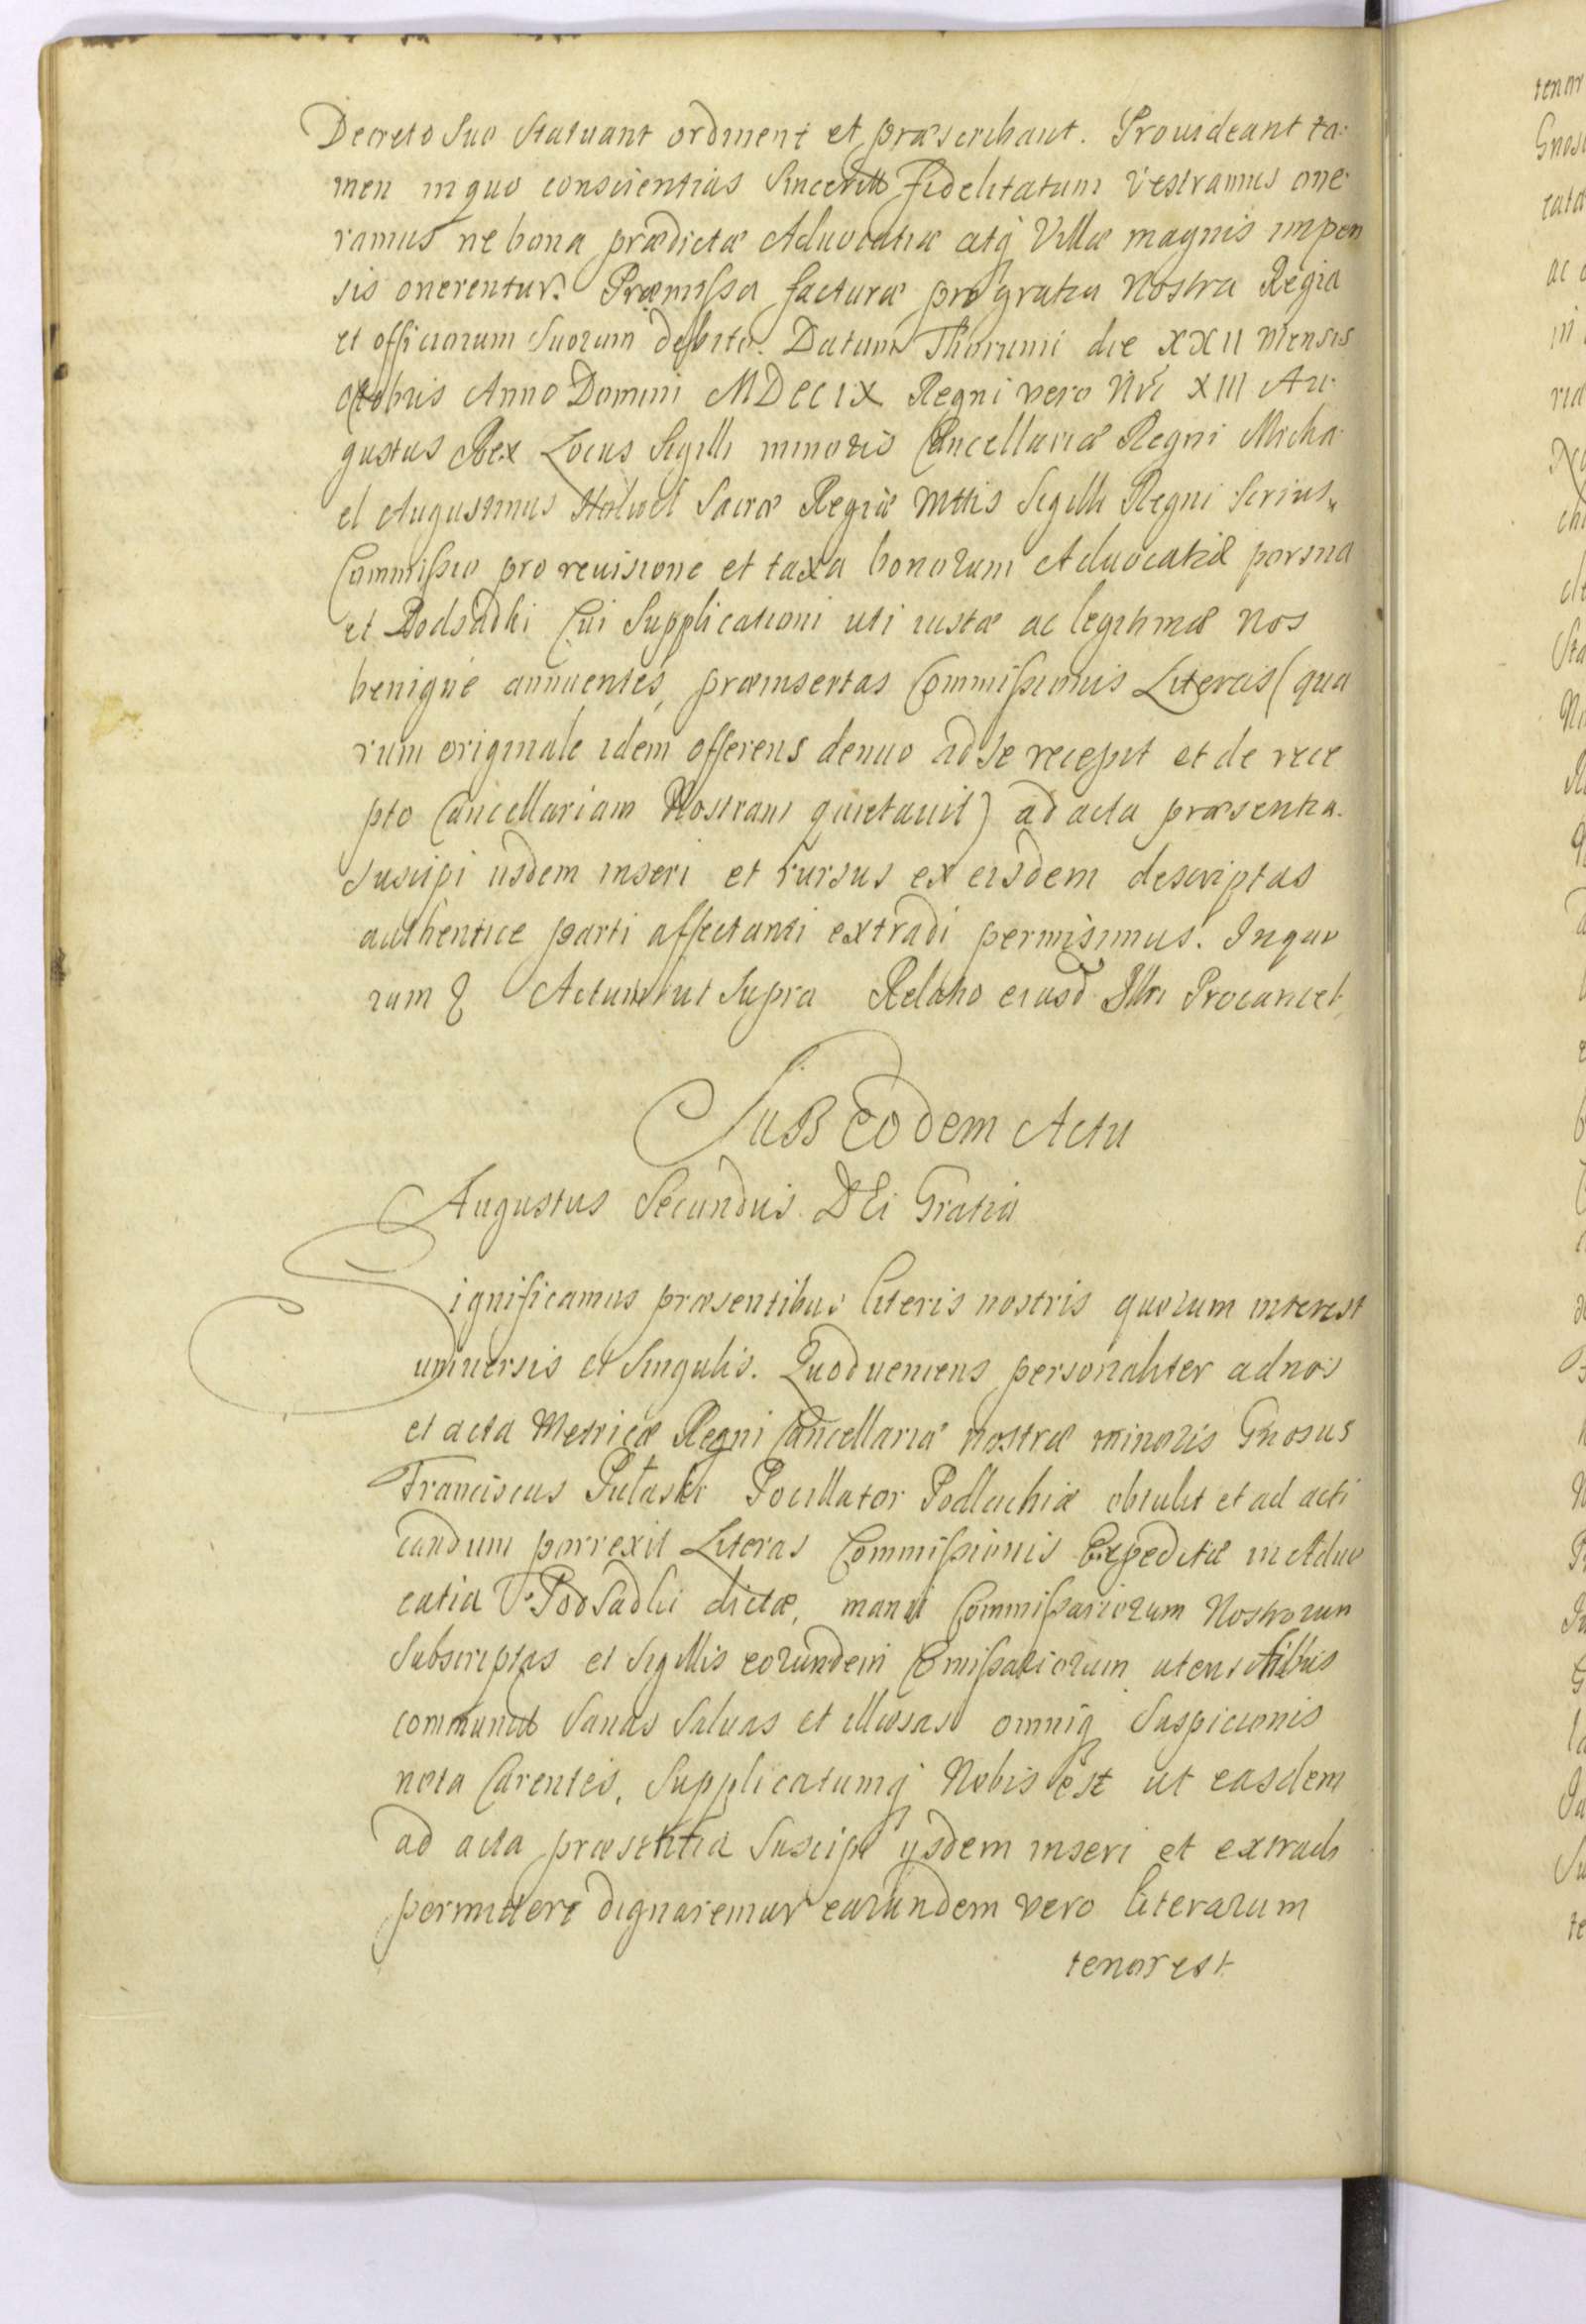 Decreto Suo Statuant ordinent et præscribant. Prouideant ta:
men in quo conscientias Sinceritt fidelitatum vestrarum one
ramus ne bona prædictæ Aduocatiæ atq Villæ magnis impen
sis onerentur. Præmissa facturæ pro gratia Nostra Regia
et officiorum Suorum debito. Datum Thorunii die XXII Mensis
Octobris Anno Domini MDCCIX Regni vero Nri XIII Au:
gustus Rex Locus Sigilli minoris Cancellariæ Regni Micha
el Augustinus Sacræ Regiæ Mttis Sigilli Regni Scrius,,
Commissio pro reuisione et taxa bonorum Aduocatiæ
et Podsadki Cui Supplicationi uti iustæ ac legitimæ Nos
benigne annuentes, præinsertas Commissionis Literas (qua
rum originale idem offerens denuo ad se recepit et de rece
pto Cancellariam Nostram quietauit) ad acta præsentia.
Suscipi iisdem inseri et rursus ex eisdem descriptas
authentice parti affectanti extradi permisimus. In quo
rum Actum ut Supra Relatio eiusd Illri Procancel,
Sub Eodem Actu
Augustus Secundus DEi Gratia
Significamus præsentibus literis nostris quorum interest
uniuersis et Singulis. Quod ueniens personaliter ad nos
et acta Metricæ Regni Cancellariæ nostræ minoris Gnosus
Franciscus Pułaski Pocillator Podlachiæ obtulit et ad acti
candum porrexit Literas Commissionis Expeditæ in Aduo
catia Podsadki dictæ, manu Commissariorum Nostrorum
Subscriptas et Sigillis eorundem Comissariorum
communit Sanas Saluas et illæsas omniq Suspicionis
nota Carentes, Supplicatumq Nobis est ut easdem
ad acta præsentia Suscipi ysdem inseri et extradi
permittere dignaremur earundem vero literarum
tenor est